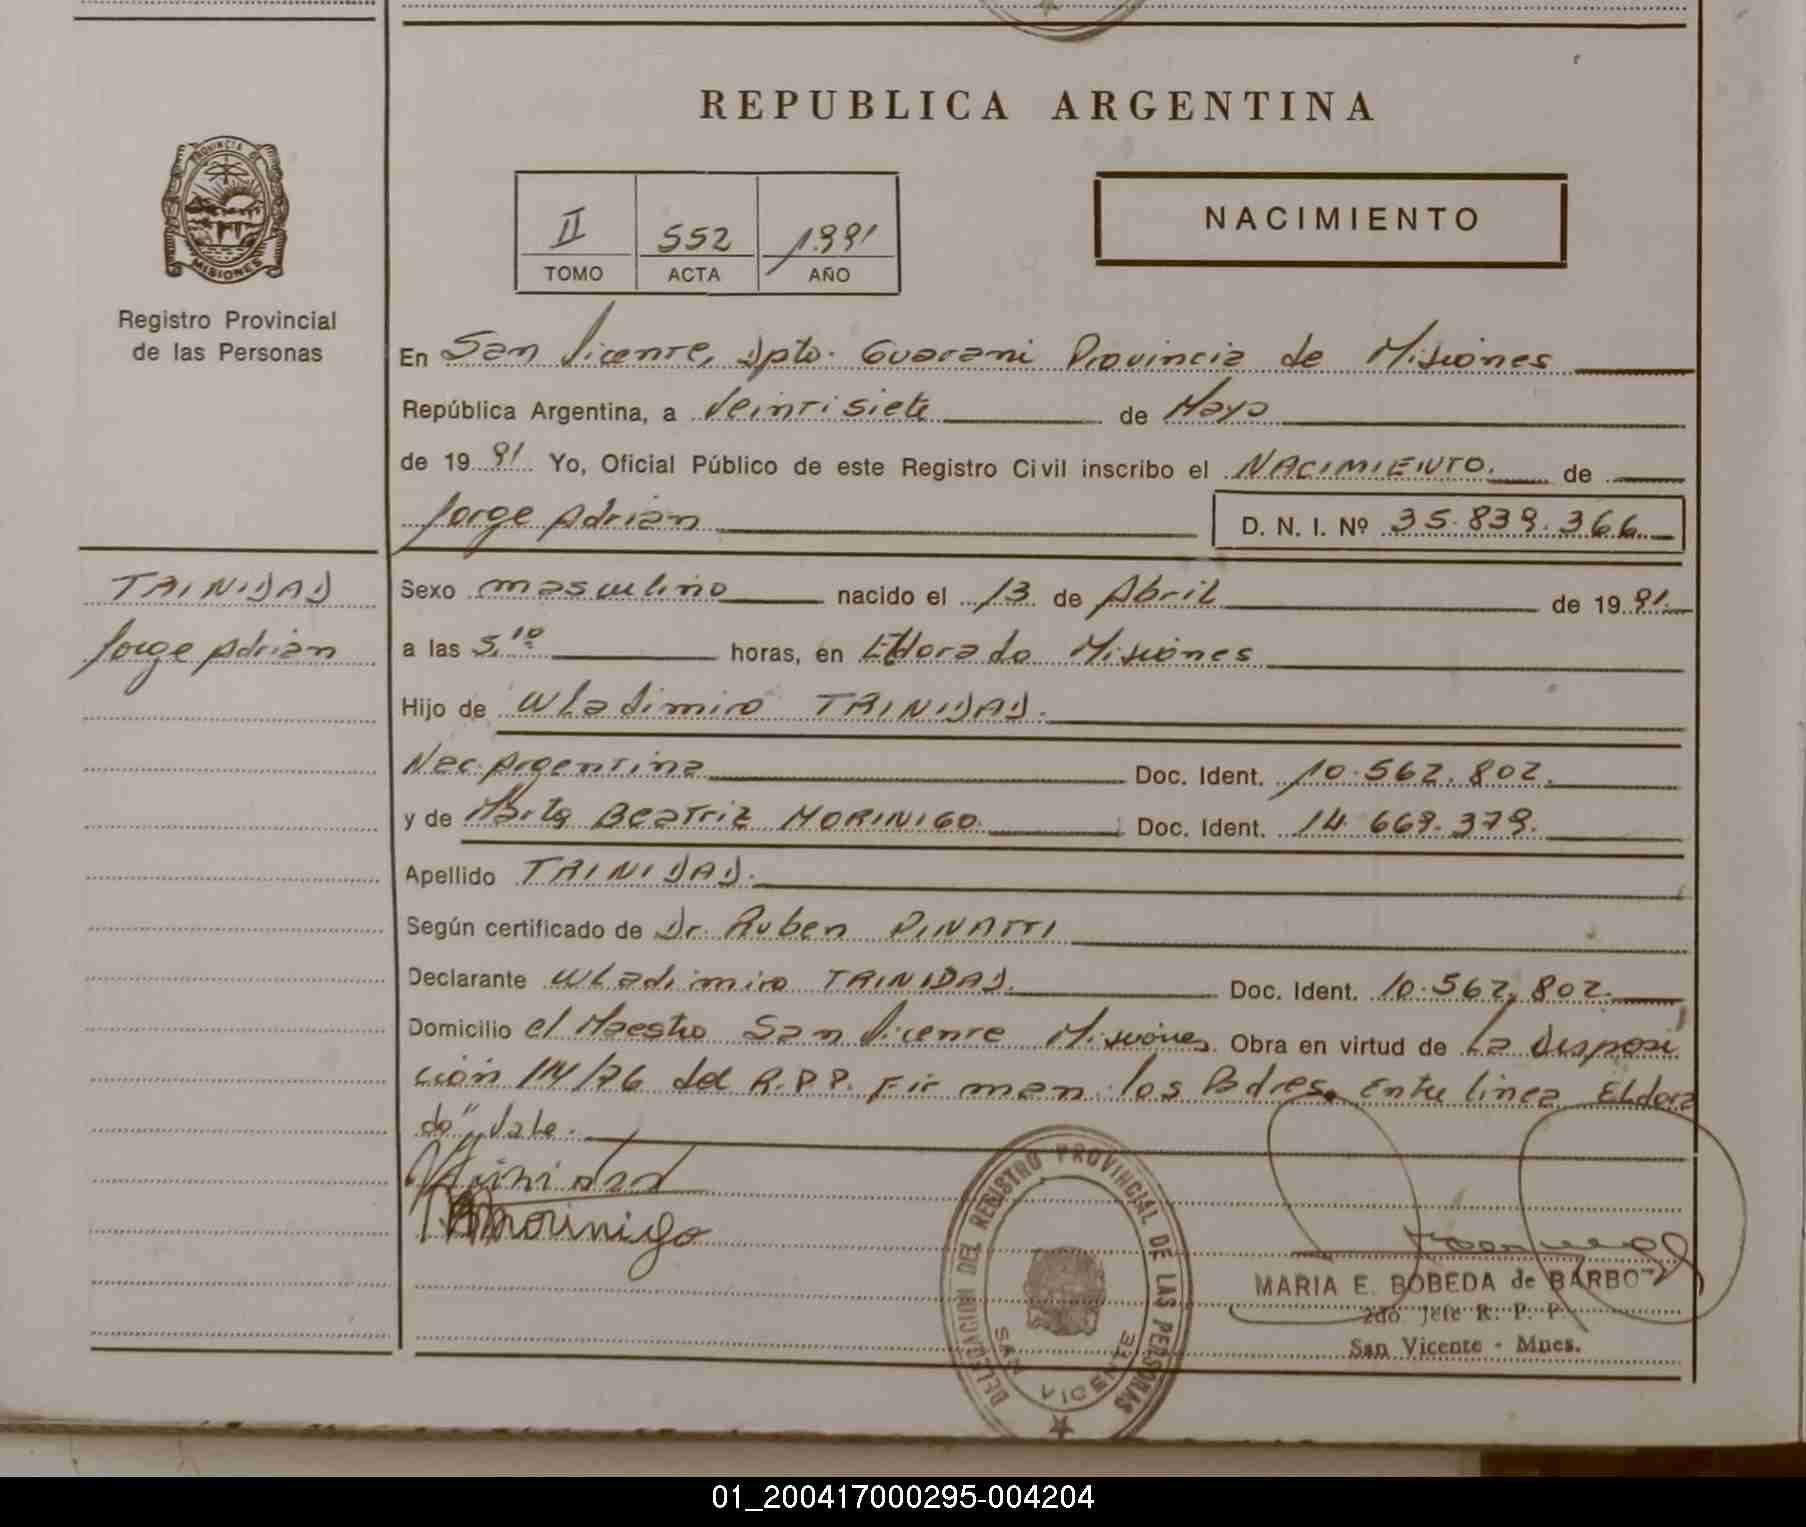 REPUBLICA ARGENTINA
PROVINCIA DE
MISIONES
Registro Provincial
de las Personas
II 552 1991
TOMO ACTA AÑO
NACIMIENTO
En San Vicente, Dpto. Guarani Provincia de Misiones
República Argentina, a Veintisiete de Mayo
de 19 91 Yo, Oficial Público de este Registro Civil inscribo el NACIMIENTO. de
Jorge Adrian D. N. I. Nº 35.839.366
TRINIDAD
Jorge Adrian
Sexo masculino nacido el 13 de Abril de 19 91.
a las 5,10 horas, en Eldorado Misiones
Hijo de Wladimiro TRINIDAD.
Nac. Argentina Doc. Ident. 10.562.802.
y de Marta Beatriz MORINIGO Doc. Ident. 14.669.379.
Apellido TRINIDAD.
Según certificado de Dr. Ruben DINATTI
Declarante Wladimiro TRINIDAD. Doc. Ident. 10.562.802.
Domicilio el Maestro San Vicente Misiones Obra en virtud de La Disposi
ción 114/76 del R.P.P. Firman los Padres. Entre linea Eldora
do" Vale.
Trinidad
Morinigo
DELEGACION DEL REGISTRO PROVINCIAL DE LAS PERSONAS
SAN VICENTE
MARIA E. BOBEDA de BARBO
2do Jefe R. P. P.
San Vicente - Mnes.
01_200417000295-004204